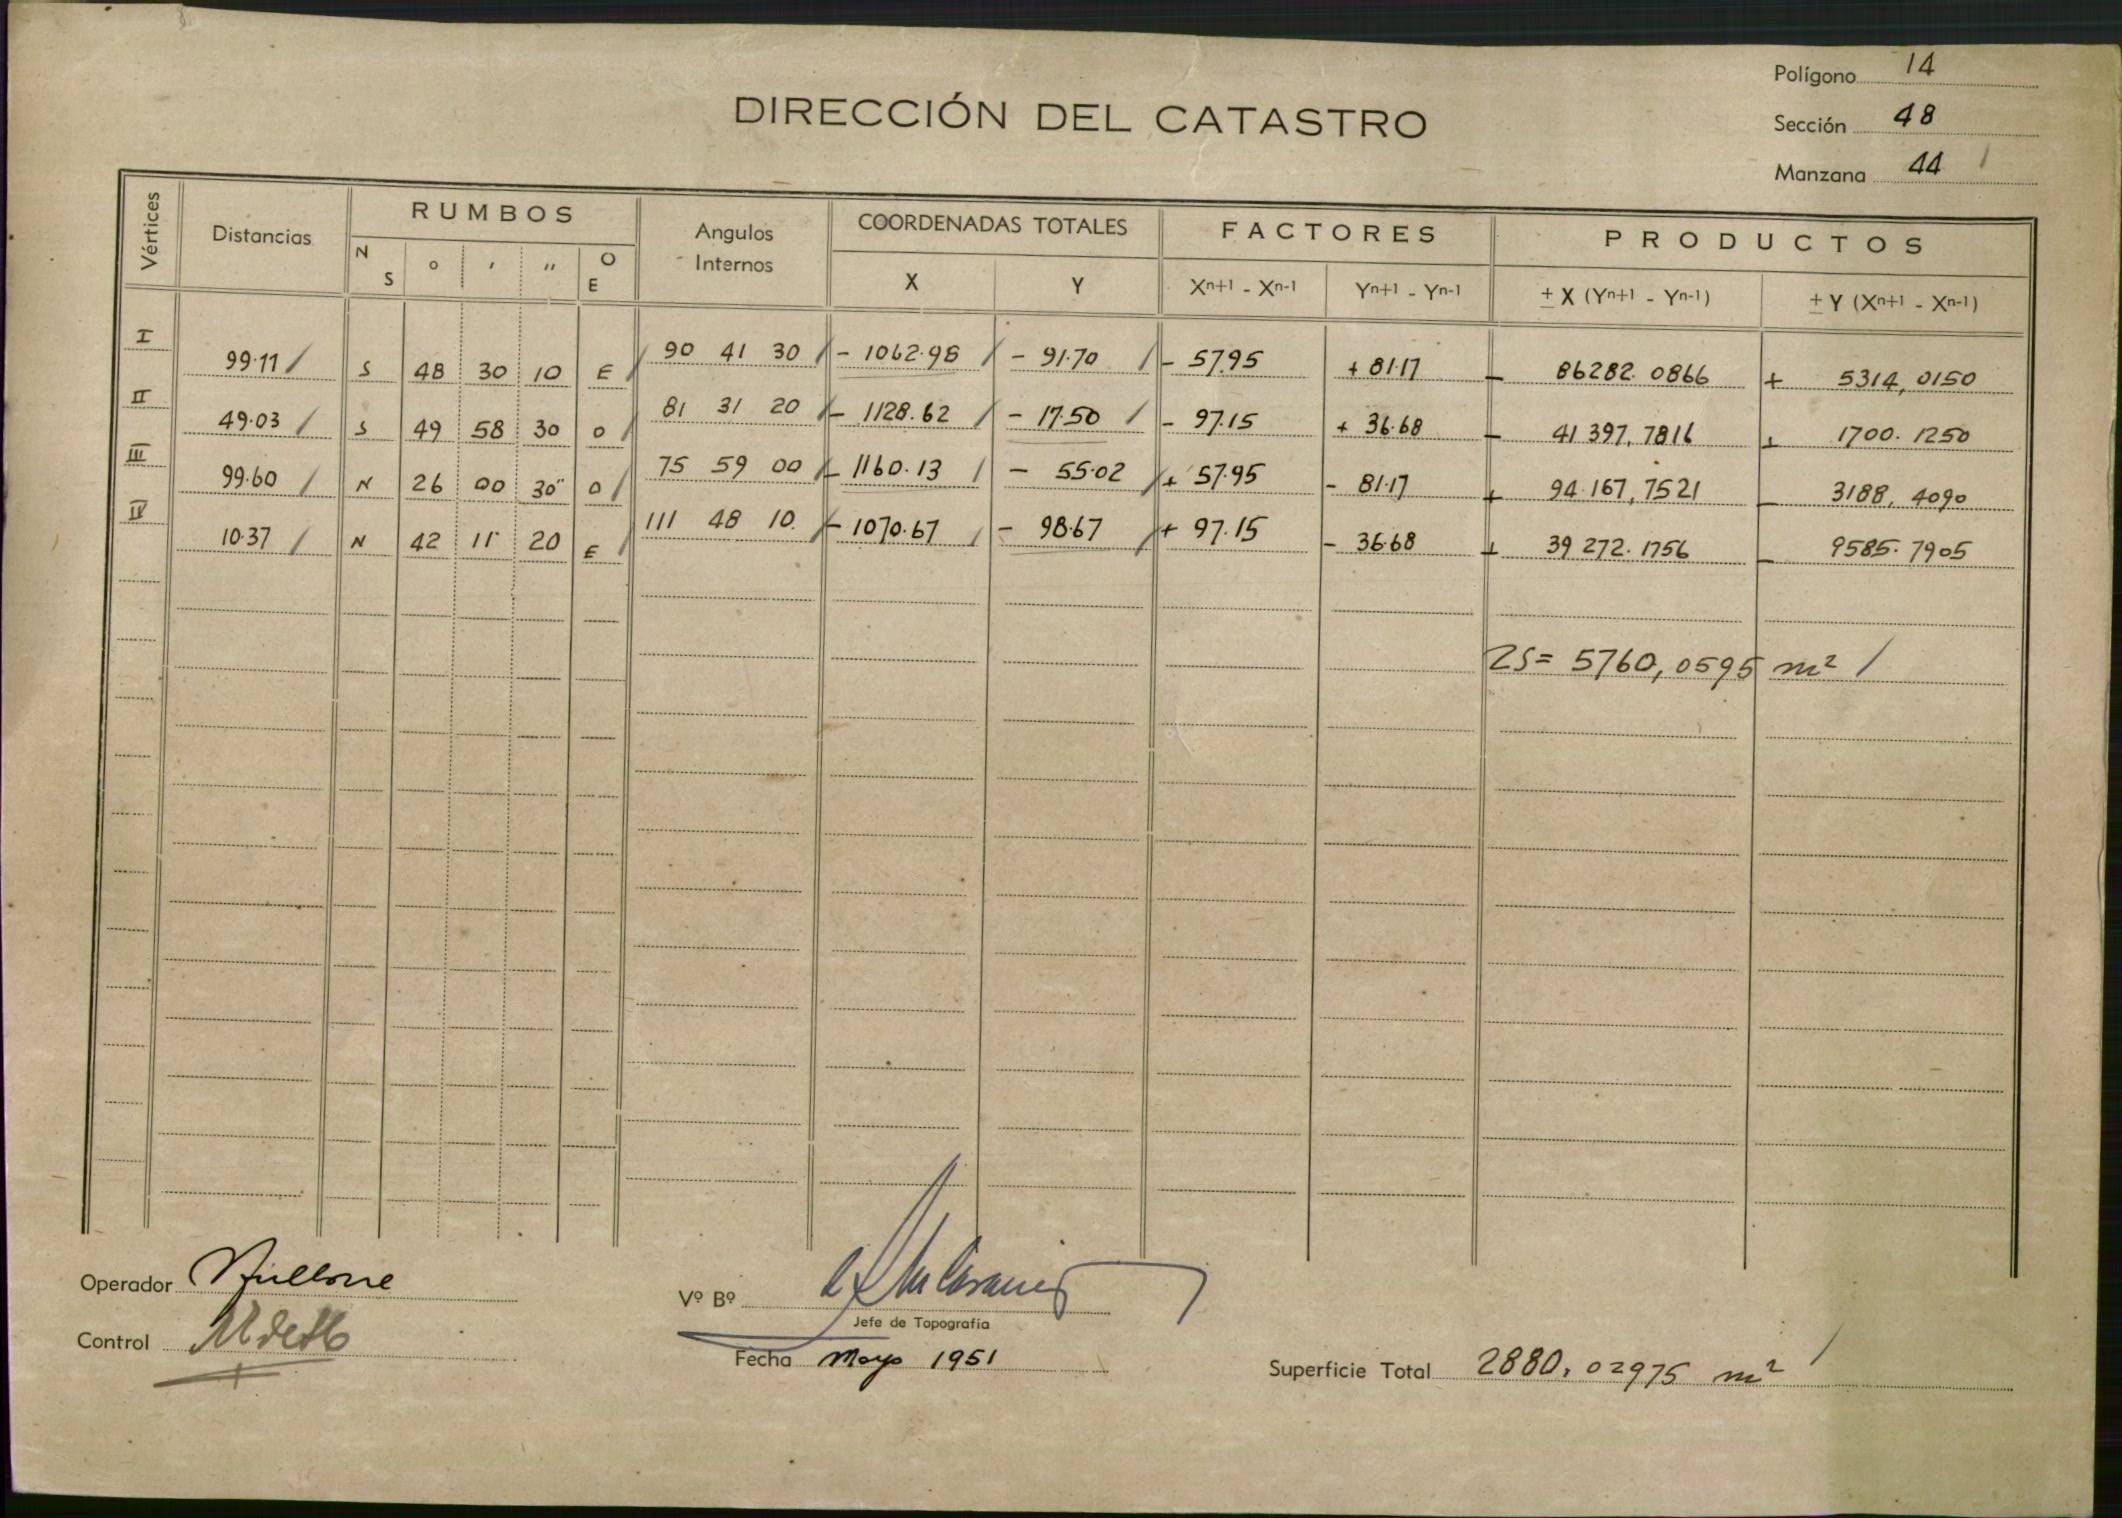 Polígono 14
DIRECCIÓN DEL CATASTRO
Sección 48
Manzana 44
Vértices Distancias RUMBOS Angulos Internos COORDENADAS TOTALES FACTORES PRODUCTOS
N S ° ′ ″ O E X Y Xn+1 - Xn-1 Yn+1 - Yn-1 ± X (Yn+1 - Yn-1) ± Y (Xn+1 - Xn-1)
I 99.11 S 48 30 10 E 90 41 30 - 1062.98 - 91.70 - 57.95 + 81.17 - 86282.0866 + 5314,0150
II 49.03 S 49 58 30 O 81 31 20 - 1128.62 - 17.50 - 97.15 + 36.68 - 41 397,7816 + 1700.1250
III 99.60 N 26 00 30" O 75 59 00 - 1160.13 - 55.02 + 57.95 - 81.17 + 94.167,7521 - 3188,4090
IV 10.37 N 42 11 20 E 111 48 10. - 1070.67 - 98.67 + 97.15 - 36.68 + 39 272.1756 - 9585.7905
2S = 5760,0595 m²
Operador
Vº Bº
Jefe de Topografía
Control
Fecha Mayo 1951
Superficie Total 2880,02975 m²